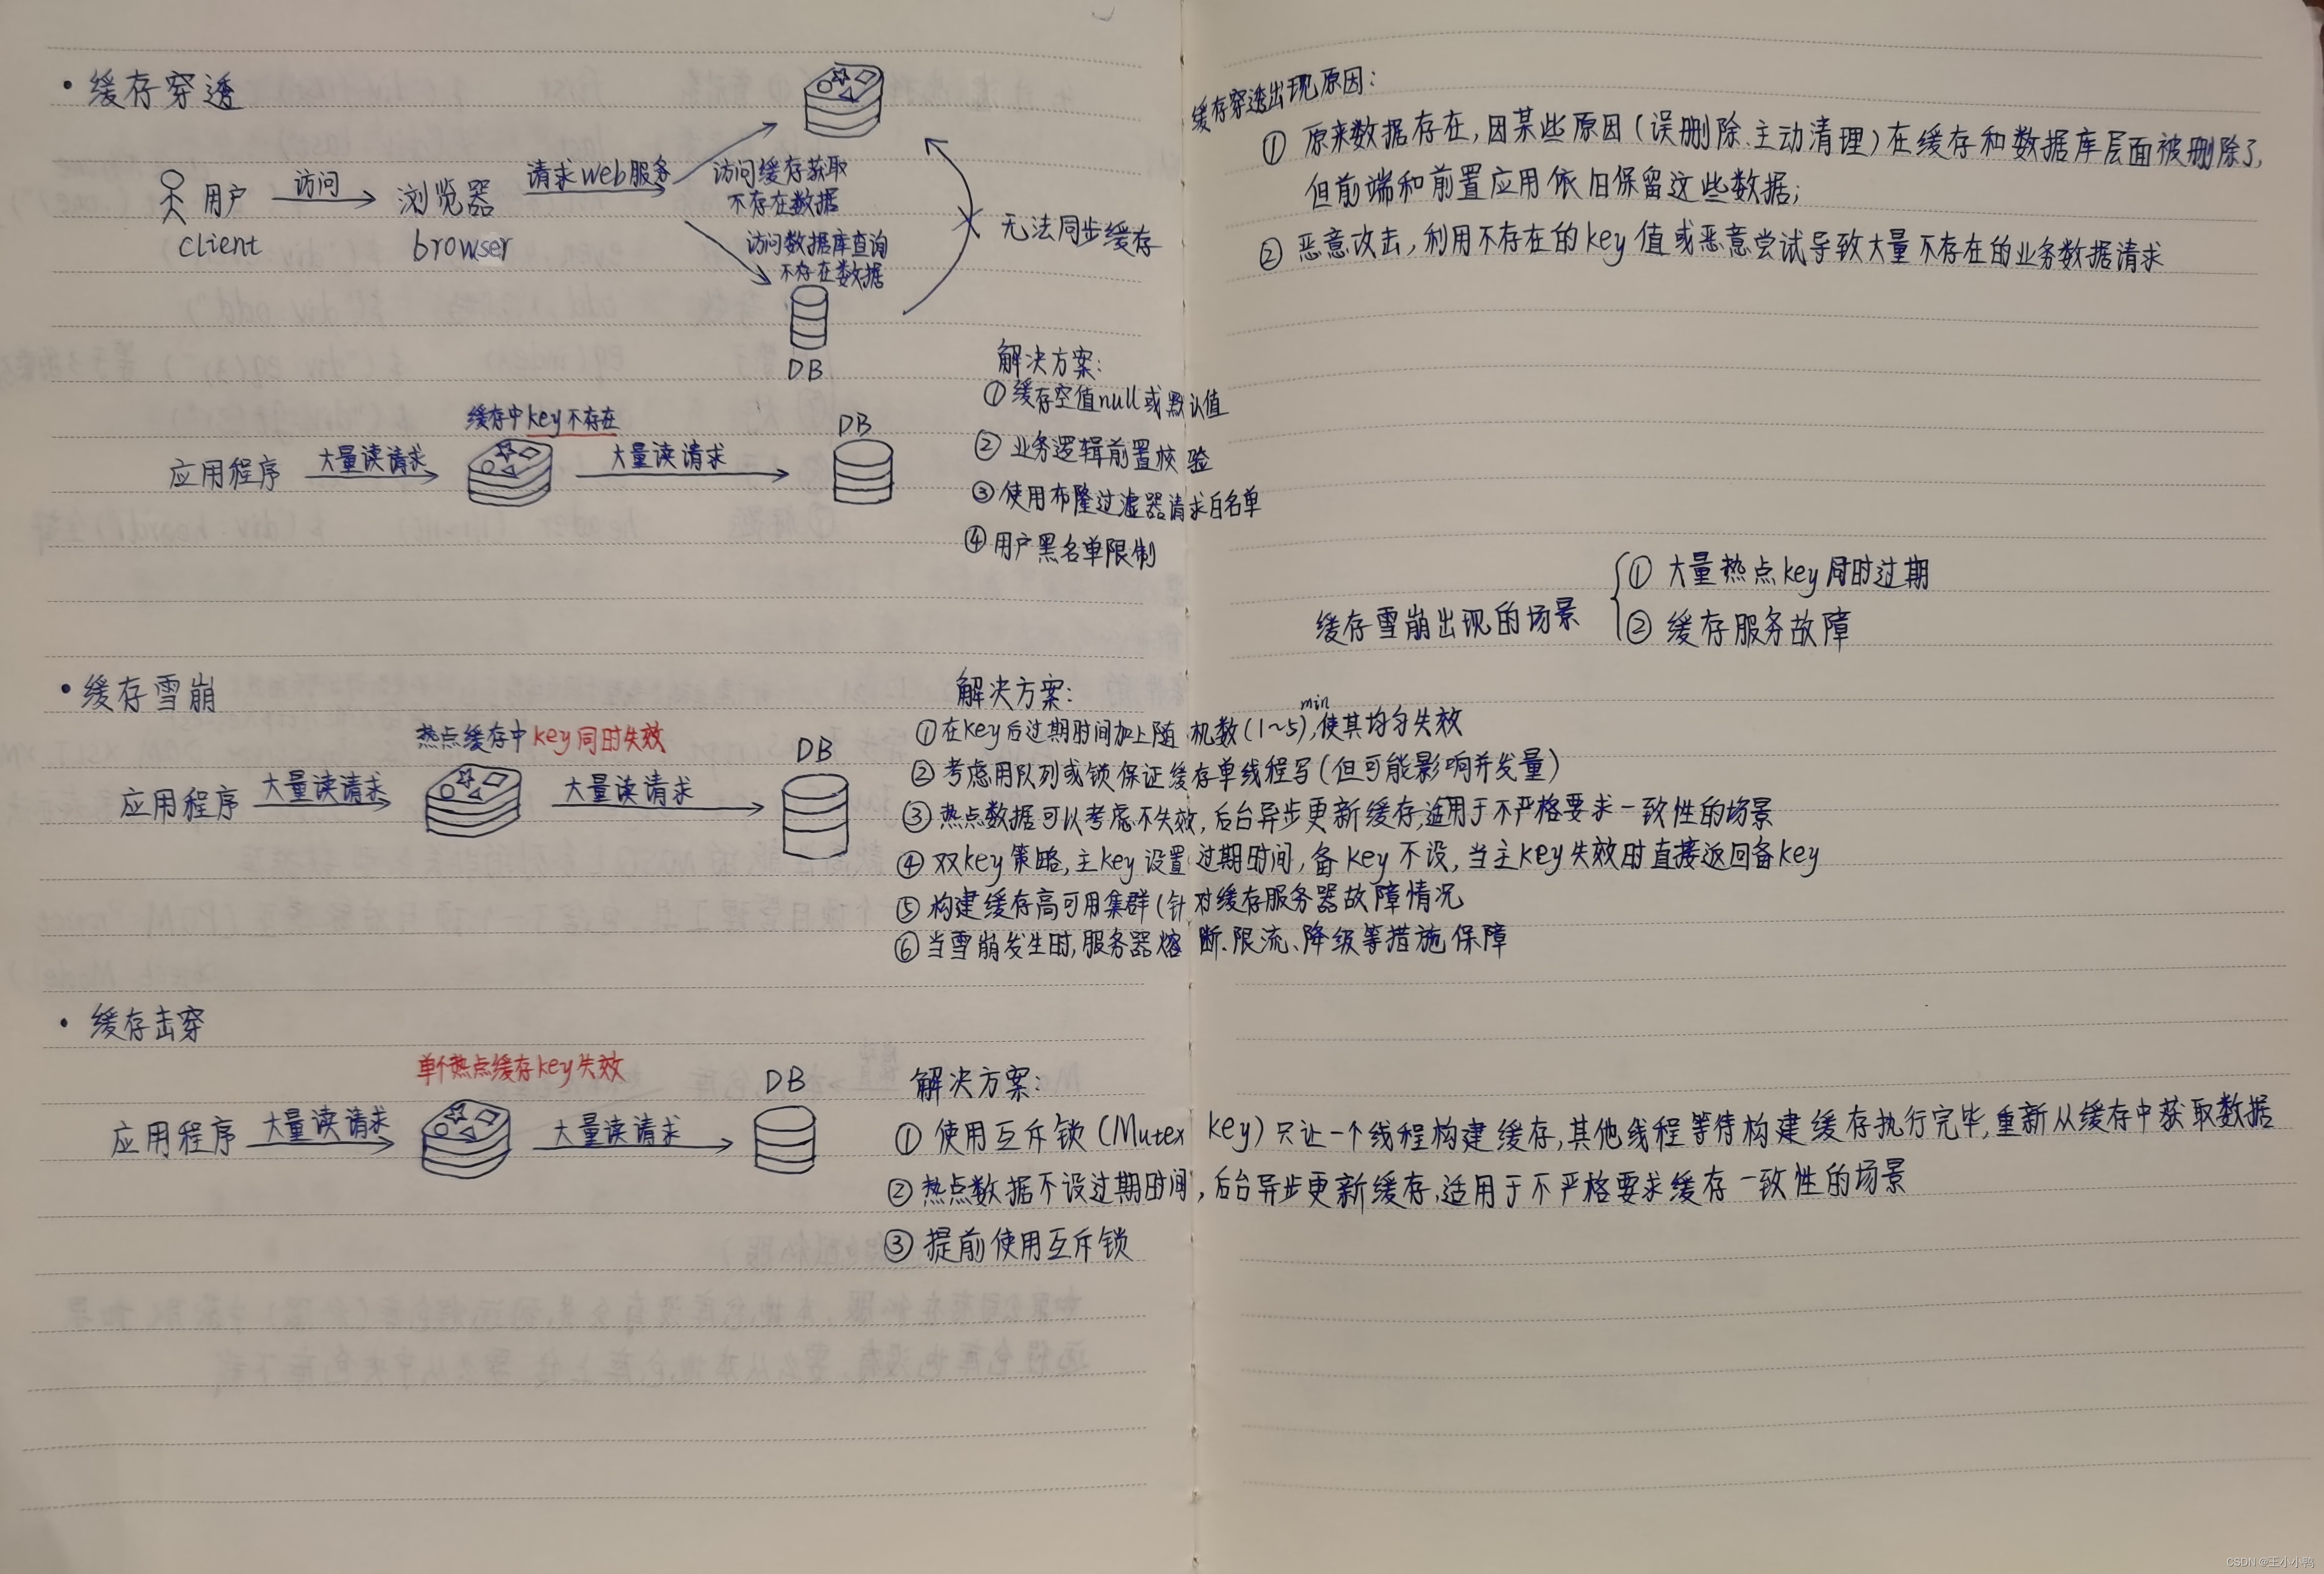 • 缓存穿透
用户
client
访问
浏览器
browser
请求web服务
访问缓存获取
不存在数据
访问数据库查询
不存在数据
DB
无法同步缓存
缓存穿透出现原因:
① 原来数据存在,因某些原因(误删除、主动清理)在缓存和数据库层面被删除了,
但前端和前置应用依旧保留这些数据;
② 恶意攻击,利用不存在的key值或恶意尝试导致大量不存在的业务数据请求
应用程序
大量读请求
缓存中key不存在
大量读请求
DB
解决方案:
①缓存空值null或默认值
②业务逻辑前置校验
③使用布隆过滤器请求白名单
④用户黑名单限制
缓存雪崩出现的场景
① 大量热点key同时过期
② 缓存服务故障
• 缓存雪崩
应用程序
大量读请求
热点缓存中key同时失效
大量读请求
DB
解决方案:
①在key后过期时间加上随机数(1~5)min,使其均匀失效
②考虑用队列或锁保证缓存单线程写(但可能影响并发量)
③热点数据可以考虑不失效,后台异步更新缓存,适用于不严格要求一致性的场景
④双key策略,主key设置过期时间,备key不设,当主key失效时直接返回备key
⑤构建缓存高可用集群(针对缓存服务器故障情况
⑥当雪崩发生时,服务器熔断、限流、降级等措施保障
• 缓存击穿
应用程序
大量读请求
单个热点缓存key失效
大量读请求
DB
解决方案:
① 使用互斥锁(Mutex key)只让一个线程构建缓存,其他线程等待构建缓存执行完毕,重新从缓存中获取数据
②热点数据不设过期时间,后台异步更新缓存,适用于不严格要求缓存一致性的场景
③ 提前使用互斥锁
CSDN @王小小鸭